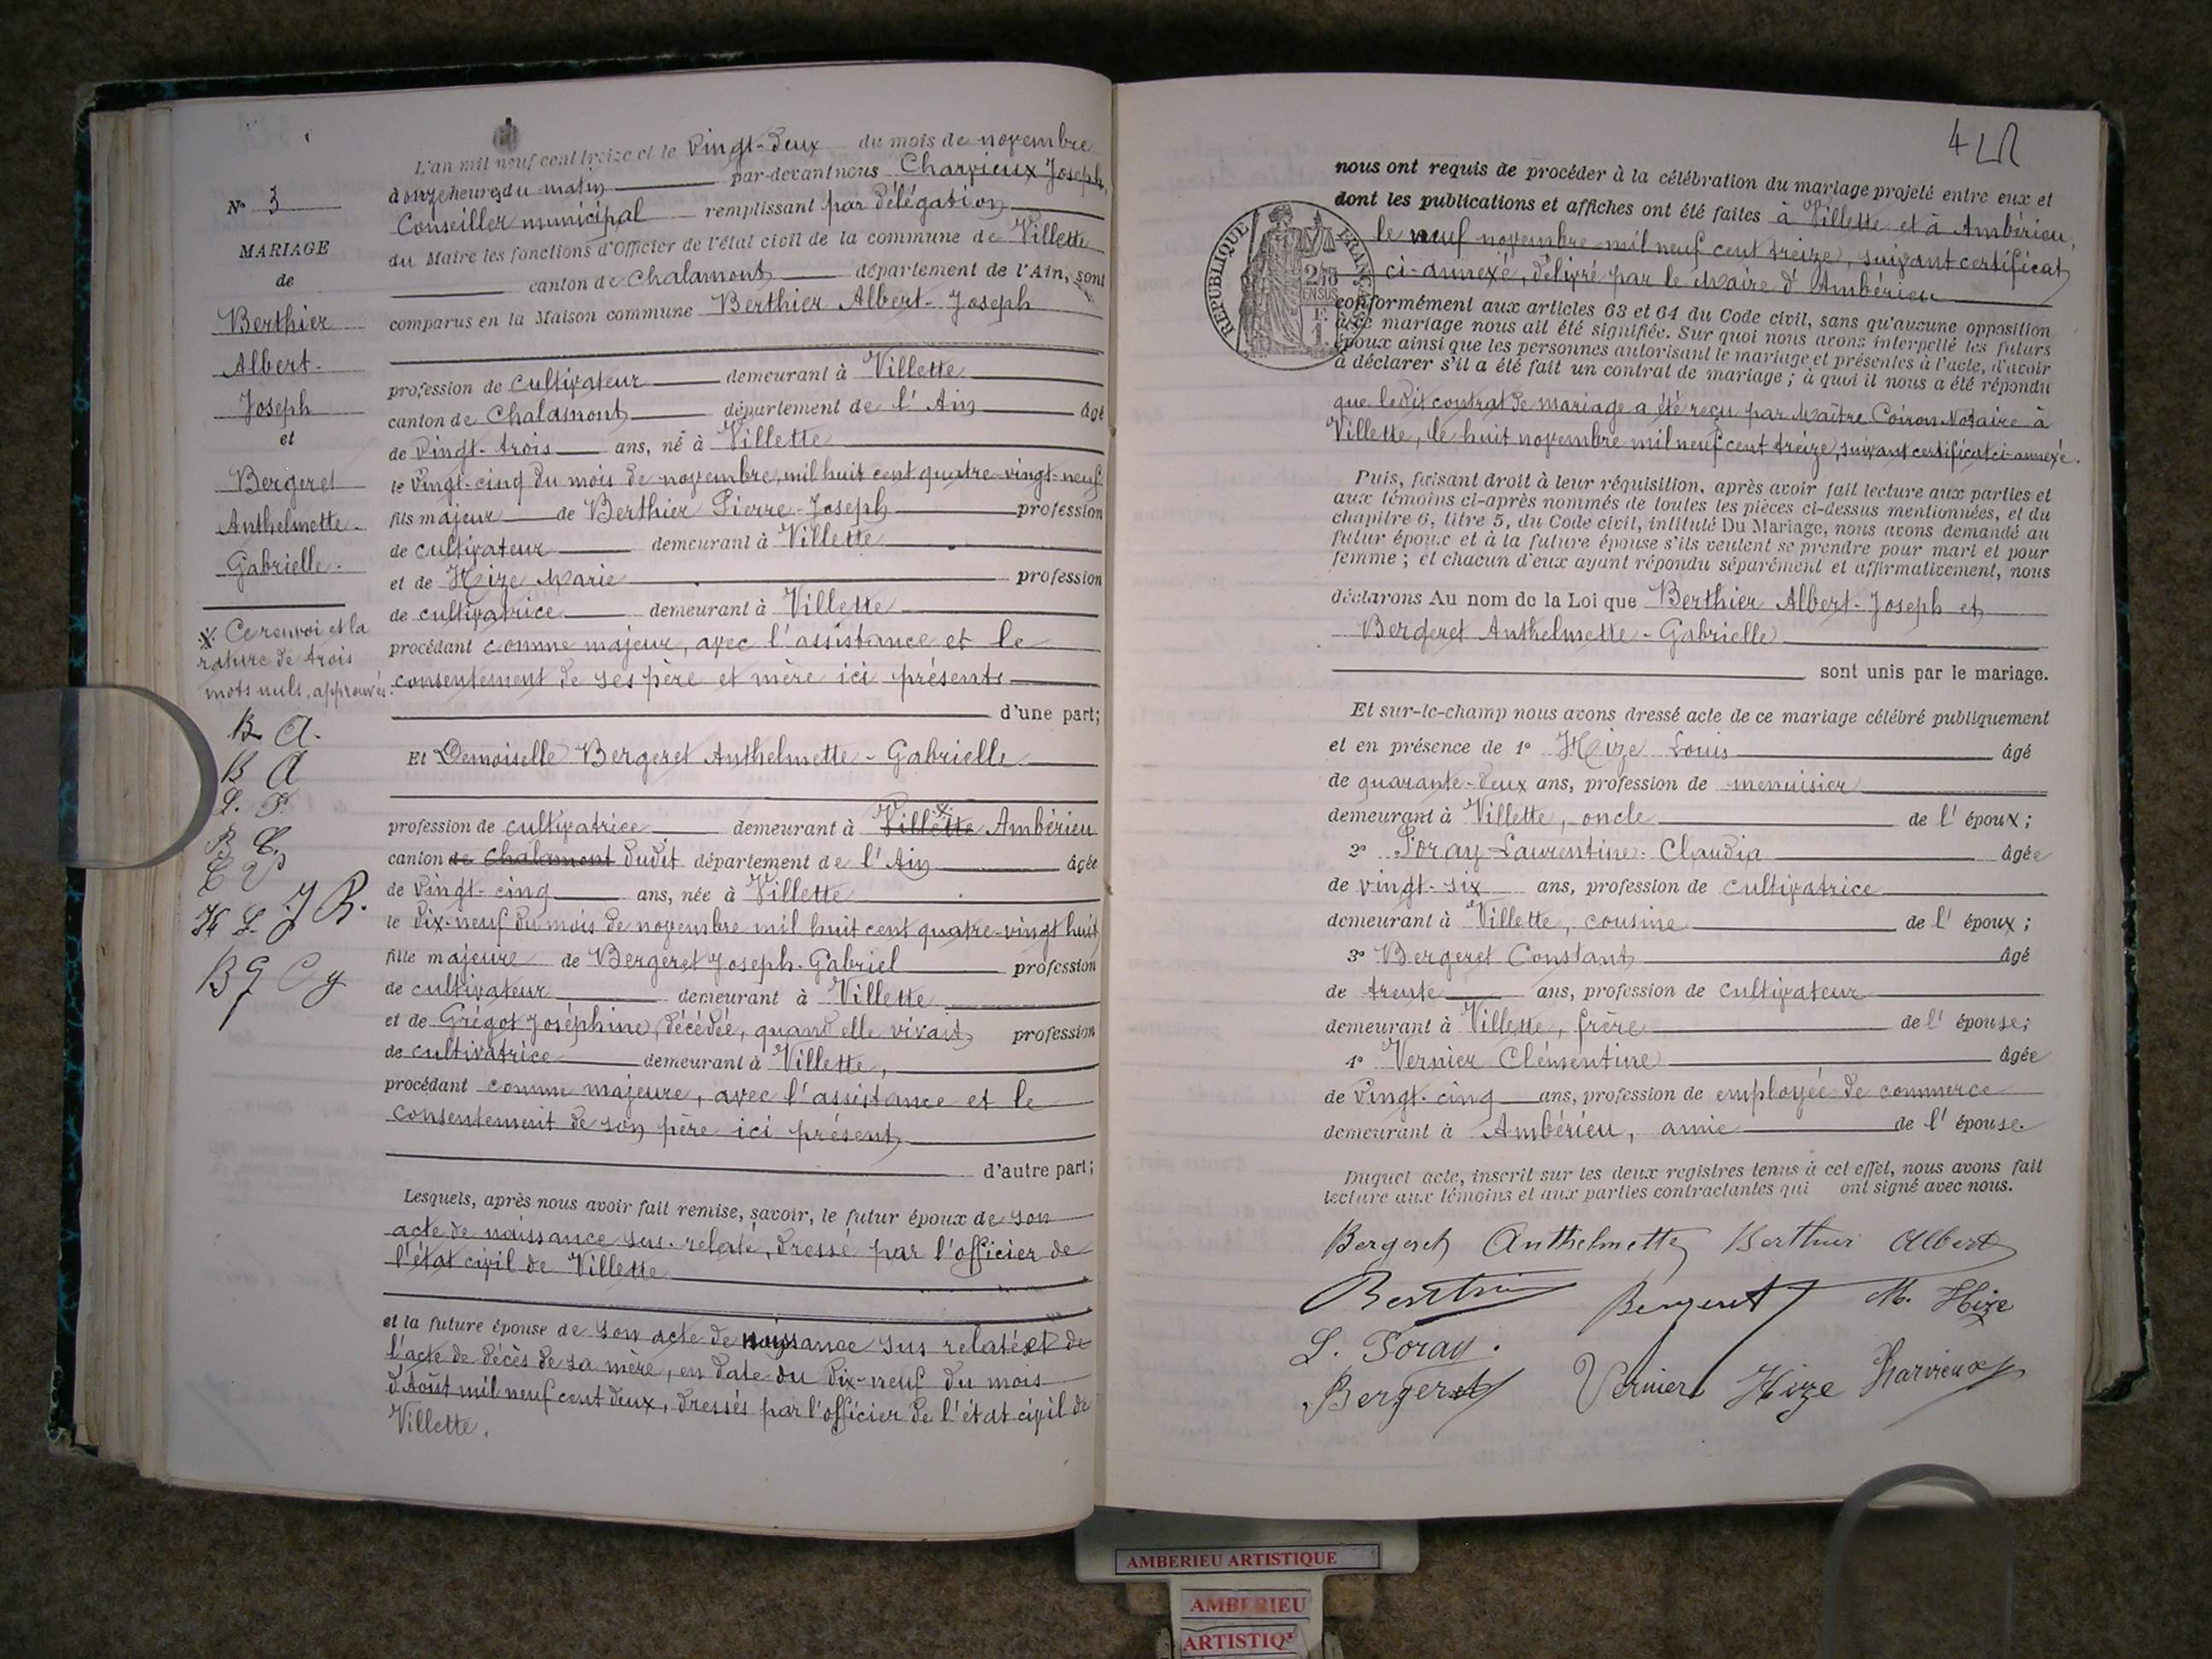 L'an mil neuf cent treize et le vingt-deux du mois de novembre
à onze heures du matin par-devant nous Charvieux Joseph,
Conseiller municipal remplissant par délégation
du Maire les fonctions d'Officier de l'état civil de la commune de Villette
canton de Chalamont département de l'Ain, sont
comparus en la Maison commune Berthier Albert-Joseph
profession de cultivateur demeurant à Villette
canton de Chalamont département de l'Ain âgé
de vingt-trois ans, né à Villette
le vingt-cinq du mois de novembre, mil huit cent quatre-vingt-neuf
fils majeur de Berthier Pierre-Joseph profession
de cultivateur demeurant à Villette
et de Hize Marie profession
de cultivatrice demeurant à Villette
procédant comme majeur, avec l'assistance et le
consentement de ses père et mère ici présents
d'une part;
Et Demoiselle Bergeret Anthelmette-Gabrielle
profession de cultivatrice demeurant à Villette Ambérieu
canton de Chalamont dudit département de l'Ain âgée
de vingt-cinq ans, née à Villette
le dix-neuf du mois de novembre mil huit cent quatre-vingt huit
fille majeure de Bergeret Joseph-Gabriel profession
de cultivateur demeurant à Villette
et de Grégot Joséphine, décédée, quand elle vivait profession
de cultivatrice demeurant à Villette,
procédant comme majeure, avec l'assistance et le
consentement de son père ici présent
d'autre part;
Lesquels, après nous avoir fait remise, savoir, le futur époux de son
acte de naissance sus-relaté, dressé par l'officier de
l'état civil de Villette
et la future épouse de son acte de naissance sus relaté et de
l'acte de décès de sa mère, en date du dix-neuf du mois
d'Août mil neuf cent deux, dressés par l'officier de l'état civil de
Villette.
N° 3
MARIAGE
de
Berthier
Albert-
Joseph
et
Bergeret
Anthelmette-
Gabrielle.
X. Ce renvoi et la
rature de trois
mots nuls, approuvés.
B A.
B A
L. F.
B C.
C V
J B.
H L.
B G C J
4
nous ont requis de procéder à la célébration du mariage projeté entre eux et
dont les publications et affiches ont été faites à Villette et à Ambérieu,
le neuf novembre mil neuf cent treize, suivant certificat
ci-annexé, délivré par le Maire d'Ambérieu
RÉPUBLIQUE FRANÇAISE
2/10
EN SUS
F.
1
conformément aux articles 63 et 64 du Code civil, sans qu'aucune opposition
à ce mariage nous ait été signifiée. Sur quoi nous avons interpellé les futurs
époux ainsi que les personnes autorisant le mariage et présentes à l'acte, d'avoir
à déclarer s'il a été fait un contrat de mariage; à quoi il nous a été répondu
que ledit contrat de mariage a été reçu par Maître Coiron Notaire à
Villette, le huit novembre mil neuf cent treize, suivant certificat ci-annexé.
Puis, faisant droit à leur réquisition, après avoir fait lecture aux parties et
aux témoins ci-après nommés de toutes les pièces ci-dessus mentionnées, et du
chapitre 6, titre 5, du Code civil, intitulé Du Mariage, nous avons demandé au
futur époux et à la future épouse s'ils veulent se prendre pour mari et pour
femme; et chacun d'eux ayant répondu séparément et affirmativement, nous
déclarons Au nom de la Loi que Berthier Albert-Joseph et
Bergeret Anthelmette-Gabrielle
sont unis par le mariage.
Et sur-le-champ nous avons dressé acte de ce mariage célébré publiquement
et en présence de 1° Hize Louis âgé
de quarante-deux ans, profession de menuisier
demeurant à Villette, oncle de l'époux;
2° Foray Laurentine-Claudia âgée
de vingt-six ans, profession de cultivatrice
demeurant à Villette, cousine de l'époux;
3° Bergeret Constant âgé
de trente ans, profession de cultivateur
demeurant à Villette, frère de l'épouse;
4° Vernier Clémentine âgée
de vingt-cinq ans, profession de employée de commerce
demeurant à Ambérieu, amie de l'épouse.
Duquel acte, inscrit sur les deux registres tenus à cet effet, nous avons fait
lecture aux témoins et aux parties contractantes qui ont signé avec nous.
Bergeret Anthelmette Berthier Albert
Berthier Bergeret M. Hize
L. Foray.
Bergeret Vernier Hize Charvieux
AMBERIEU ARTISTIQUE
AMBERIEU
ARTISTIQ